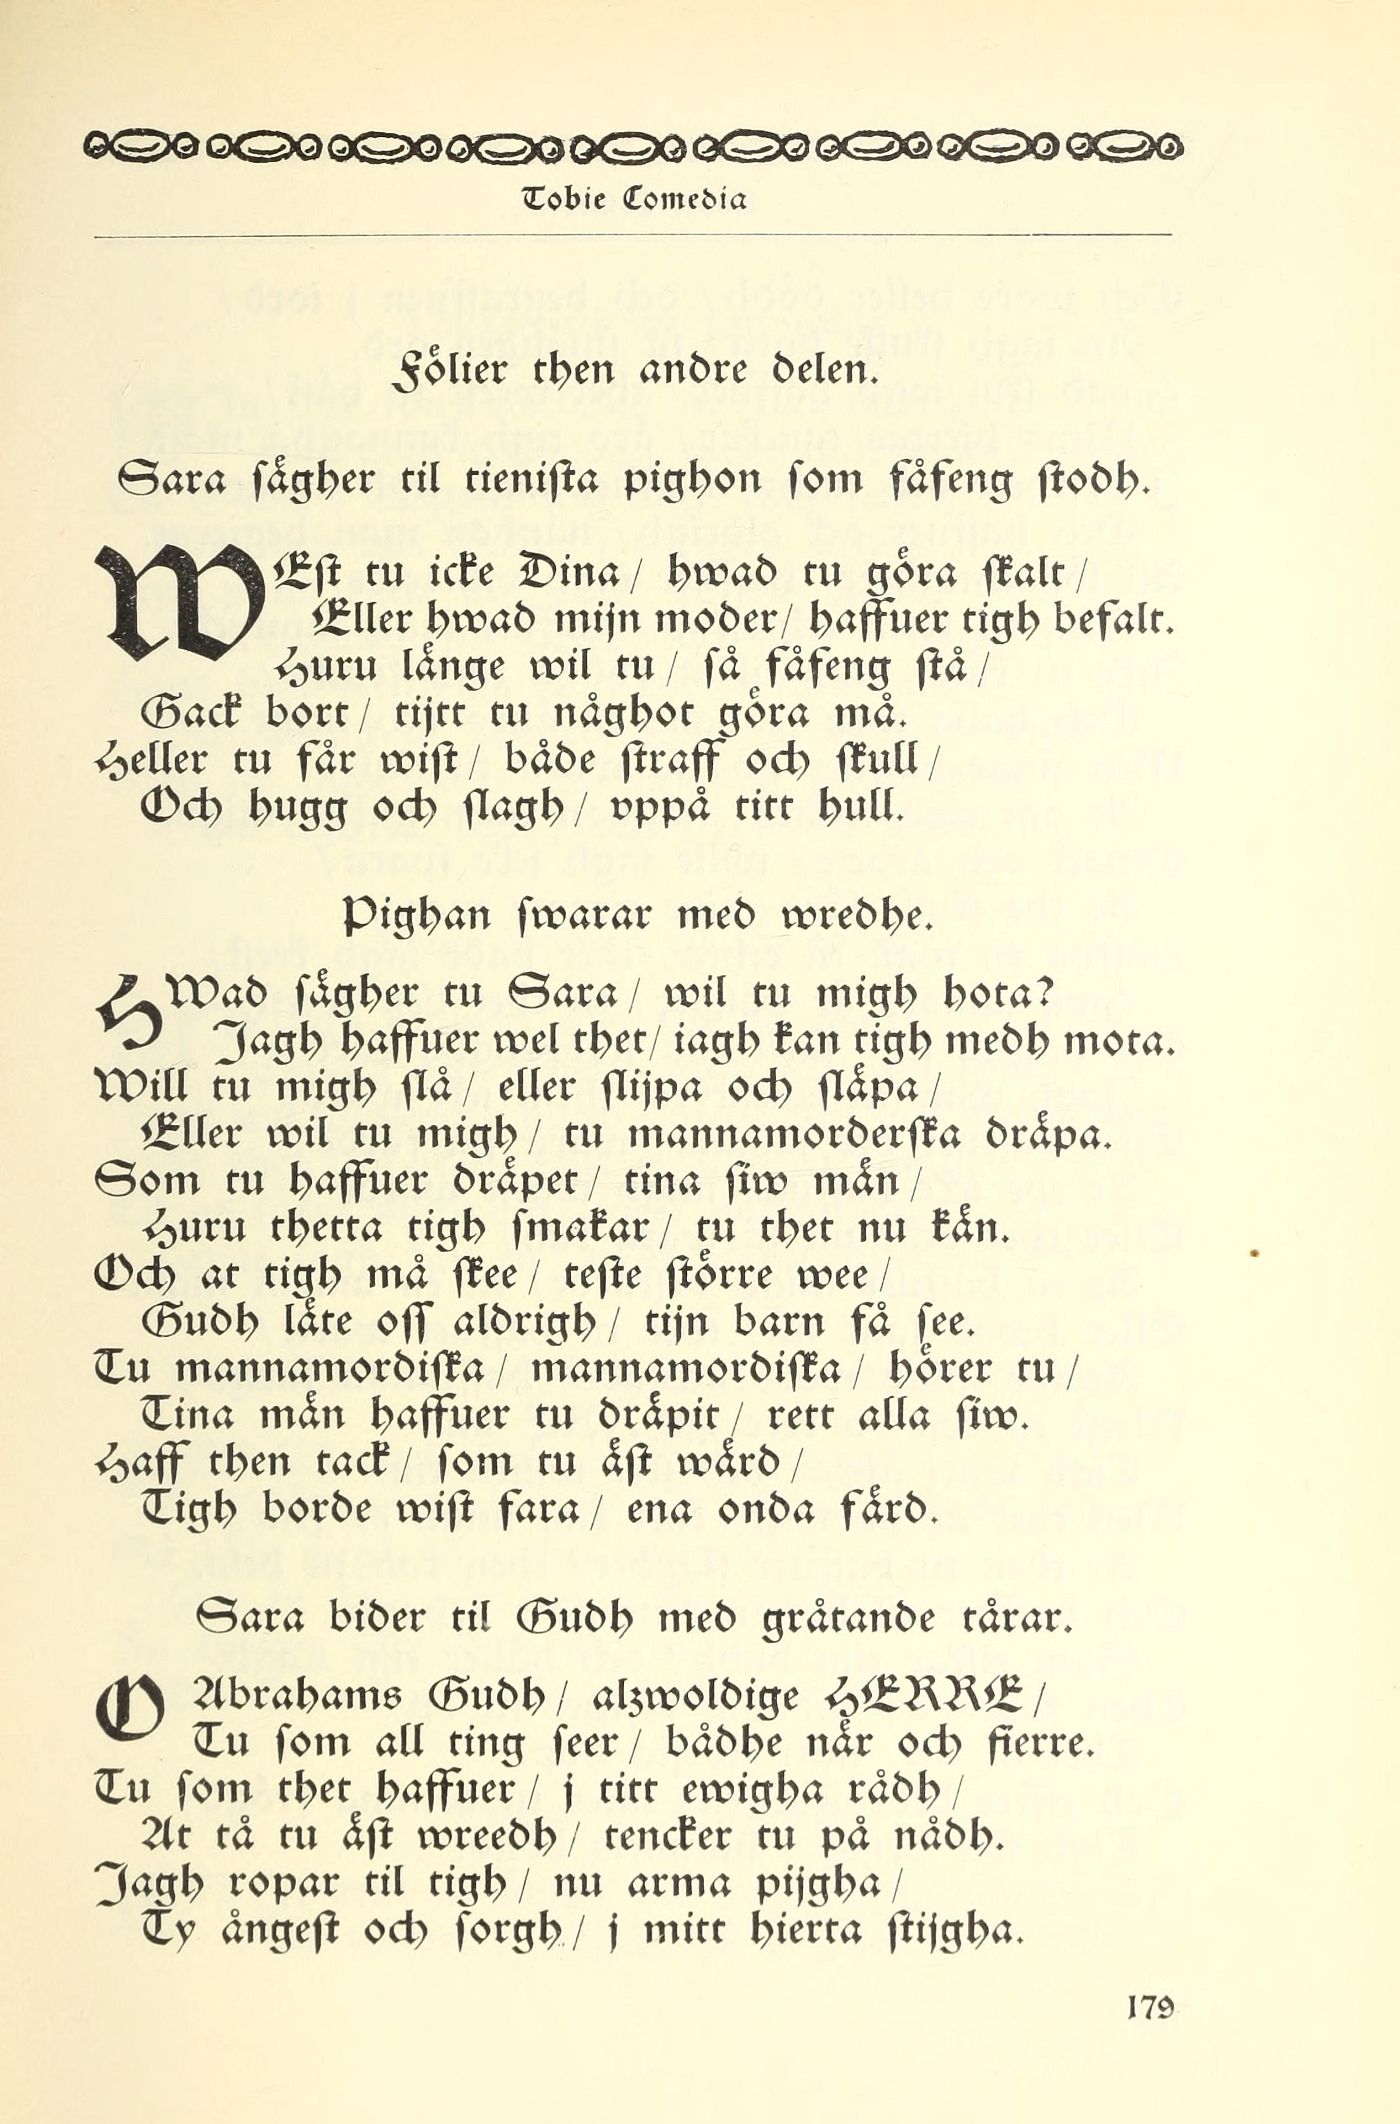 Tobie Comedia
Fölier then andre delen.
Sara sägher til tienista pighon som fåfeng stodh.
WEst tu icke Dina / hwad tu göra skalt /
Eller hwad mijn moder / haffuer tigh befalt.
Huru länge wil tu / så fåfeng stå /
Gack bort / tijtt tu någhot göra må.
Heller tu får wist / både straff och skull /
Och hugg och slagh / vppå titt hull.
Pighan swarar med wredhe.
HWad sägher tu Sara / wil tu migh hota?
Jagh haffuer wel thet / iagh kan tigh medh mota.
Will tu migh slå / eller slijpa och släpa /
Eller wil tu migh / tu mannamorderska dräpa.
Som tu haffuer dräpet / tina siw män /
Huru thetta tigh smakar / tu thet nu kän.
Och at tigh må skee / teste större wee /
Gudh läte oss aldrigh / tijn barn få see.
Tu mannamordiska / mannamordiska / hörer tu /
Tina män haffuer tu dräpit / rett alla siw.
Haff then tack / som tu äst wärd /
Tigh borde wist fara / ena onda färd.
Sara bider til Gudh med gråtande tårar.
O Abrahams Gudh / alzwoldige HERRE /
Tu som all ting seer / bådhe när och fierre.
Tu som thet haffuer / j titt ewigha rådh /
At tå tu äst wreedh / tencker tu på nådh.
Jagh ropar til tigh / nu arma pijgha /
Ty ångest och sorgh / j mitt hierta stijgha.
179